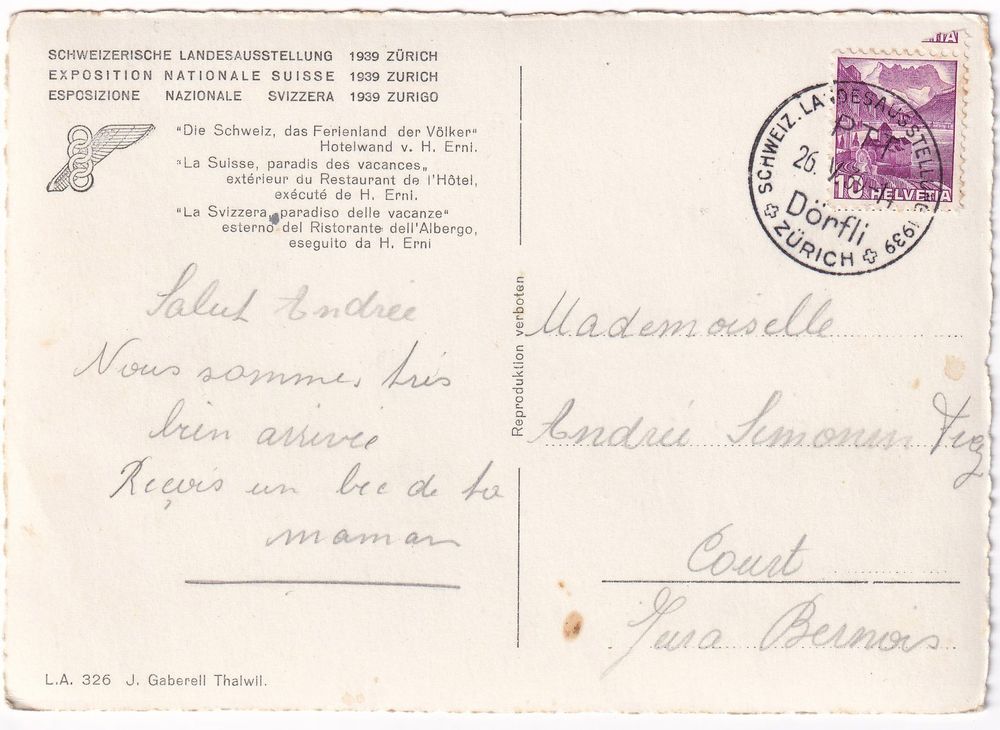 SCHWEIZERISCHE LANDESAUSSTELLUNG 1939 ZÜRICH
EXPOSITION NATIONALE SUISSE 1939 ZURICH
ESPOSIZIONE NAZIONALE SVIZZERA 1939 ZURIGO
"Die Schweiz, das Ferienland der Völker"
Hotelwand v. H. Erni.
"La Suisse, paradis des vacances„
extérieur du Restaurant de l'Hôtel,
exécuté de H. Erni.
"La Svizzera, paradiso delle vacanze"
esterno del Ristorante dell'Albergo,
eseguito da H. Erni
Salut Andrée
Nous sommes très
bien arrivée
Reçois un bec de ta
maman
L.A. 326 J. Gaberell Thalwil.
Reproduktion verboten
SCHWEIZ. LANDESAUSSTELLUNG 1939
PTT
26.
Dörfli
ZÜRICH
10 HELVETIA
Mademoiselle
Andrée Simonin
Court
Jura Bernois